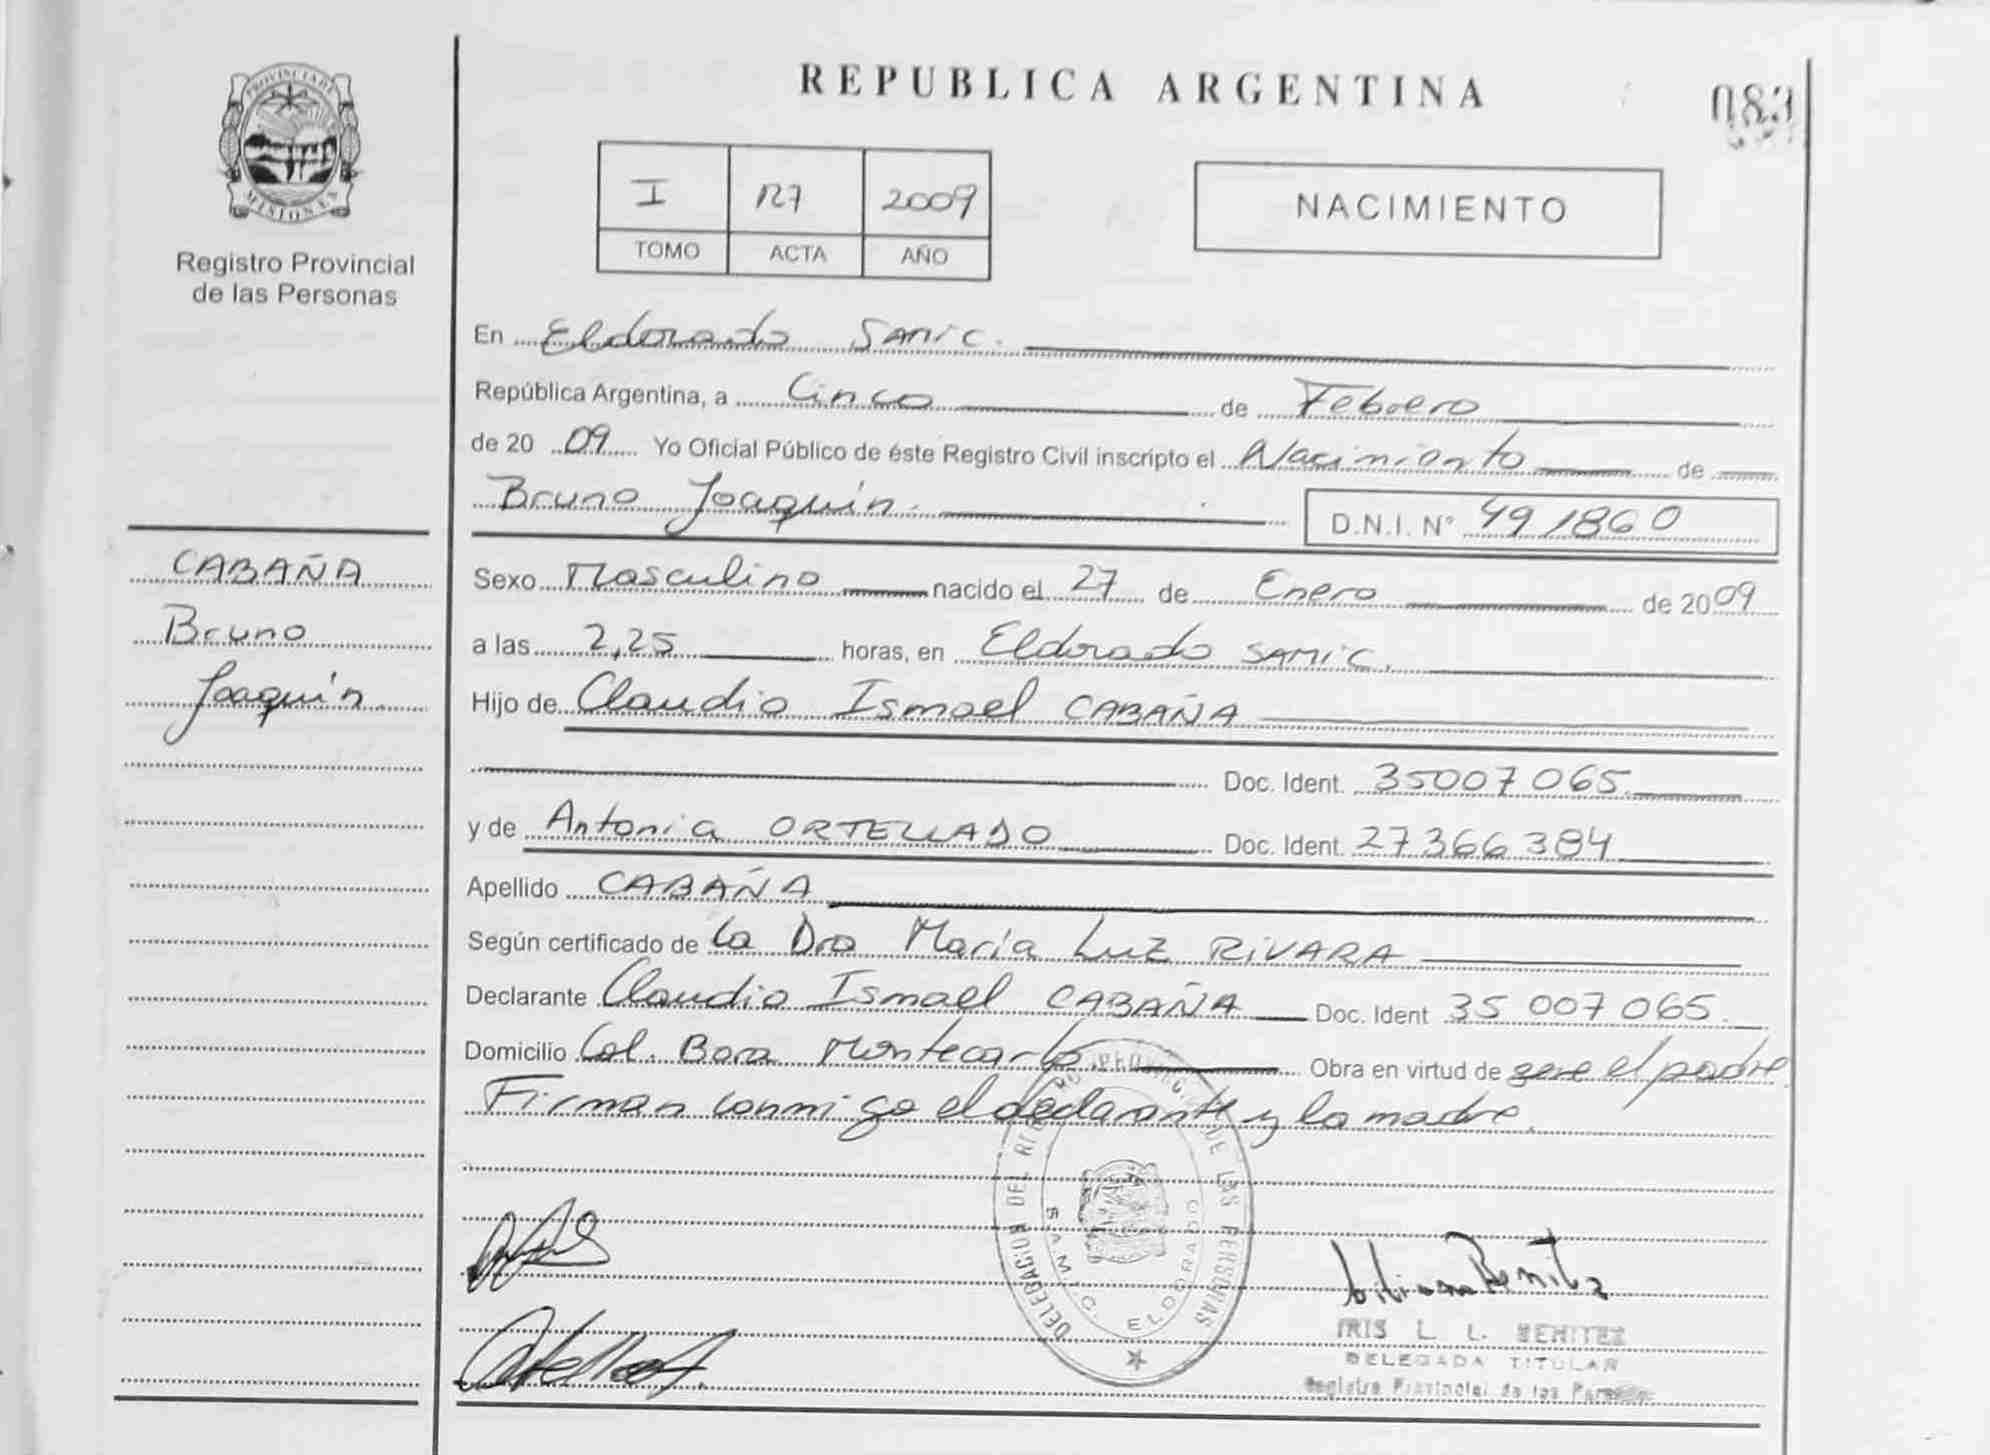 PROVINCIA DE
MISIONES
Registro Provincial
de las Personas
CABAÑA
Bruno
Joaquín.
REPUBLICA ARGENTINA
083
I 127 2009
TOMO ACTA AÑO
NACIMIENTO
En Eldorado SAMIC.
República Argentina, a Cinco de Febrero
de 2009 Yo Oficial Público de éste Registro Civil inscripto el Nacimiento de
Bruno Joaquín. D.N.I. Nº 491860
Sexo Masculino nacido el 27 de Enero de 2009
a las 2,25 horas, en Eldorado SAMIC.
Hijo de Claudio Ismael CABAÑA
Doc. Ident. 35007065.
y de Antonia ORTELLADO Doc. Ident. 27366384
Apellido CABAÑA
Según certificado de la Dra María Luz RIVARA
Declarante Claudio Ismael CABAÑA Doc. Ident 35 007 065.
Domicilio Col. Bora Montecarlo Obra en virtud de sere el padre.
Firman conmigo el declarante y la madre.
DELEGACION DEL REGISTRO PROVINCIAL DE LAS PERSONAS
S.A.M.I.C. ELDORADO
IRIS L. L. BENITEZ
DELEGADA TITULAR
Registro Provincial de las Personas